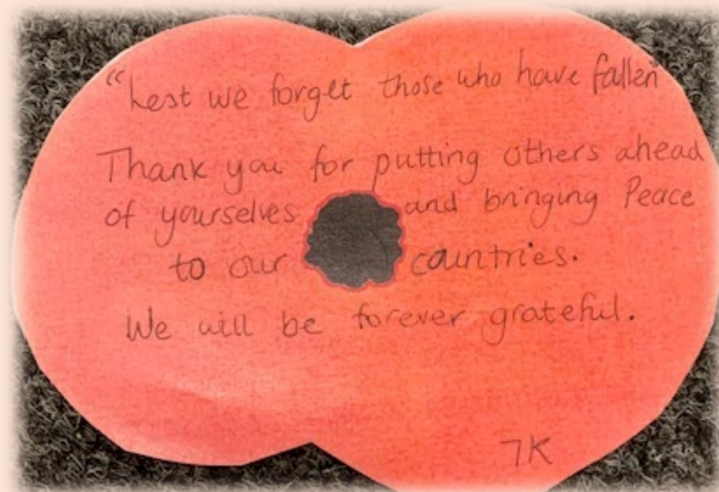 "Lest we forget those who have fallen"
Thank you for putting others ahead
of yourselves and bringing Peace
to our countries.
We will be forever grateful.
7K